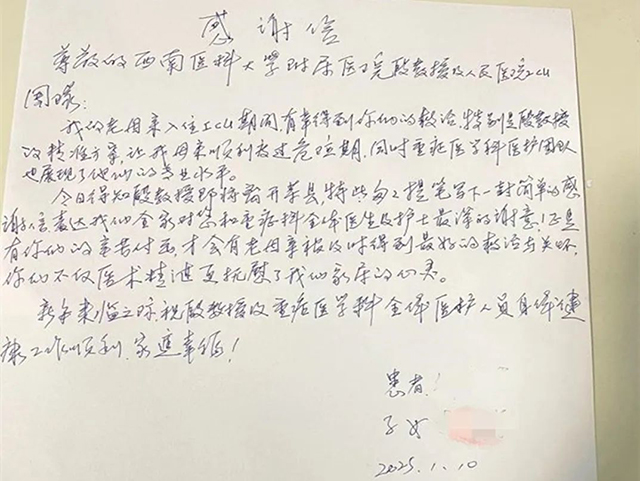 感谢信
尊敬的西南医科大学附属医院殷教授及人民医院ICU
团队:
我的老母亲入住ICU期间,有幸得到你们的救治,特别是殷教授
的精准方案,让我母亲顺利渡过危险期,同时重症医学科医护团队
也展现了他们的专业水平。
今日得知殷教授即将离开荣县,特此匆匆提笔写下一封简单的感
谢信表达我们全家对您和重症科全体医生及护士最深的谢意!正是
有你们的辛苦付出,才会有老母亲被及时得到最好的救治与关怀,
你们不仅医术精湛更抚慰了我们家属的心灵。
新年来临之际,祝殷教授及重症医学科全体医护人员身体健
康、工作顺利、家庭幸福!
患者:
子女
2025.1.10